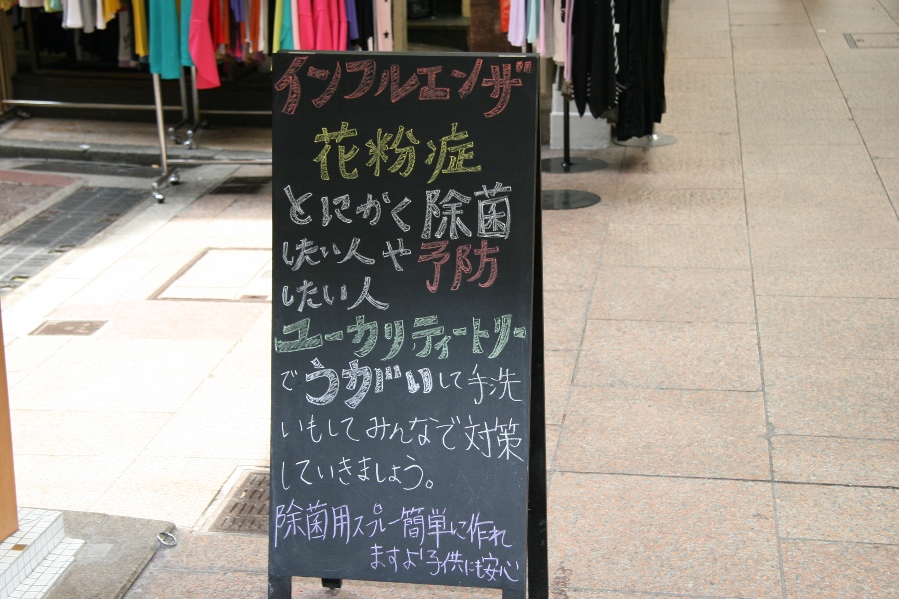 インフルエンザ
花粉症
とにかく除菌
したい人や予防
したい人
ユーカリティートリー
でうがいして手洗
いもしてみんなで対策
していきましょう。
除菌用スプレー簡単に作れ
ますよ!子供にも安心